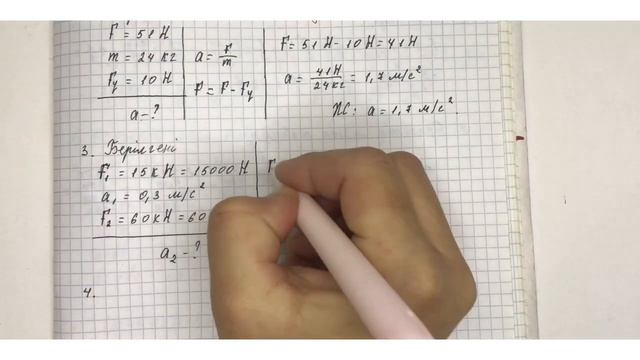 F = 51 Н
m = 24 кг
Fу = 10 Н
a - ?
a = F/m
F = F - Fу
F = 51 Н - 10 Н = 41 Н
a = 41 Н / 24 кг = 1,7 м/с²
Ж: a = 1,7 м/с².
3. Берілгені
F₁ = 15 кН = 15000 Н
a₁ = 0,3 м/с²
F₂ = 60 кН = 60
a₂ - ?
F
4.